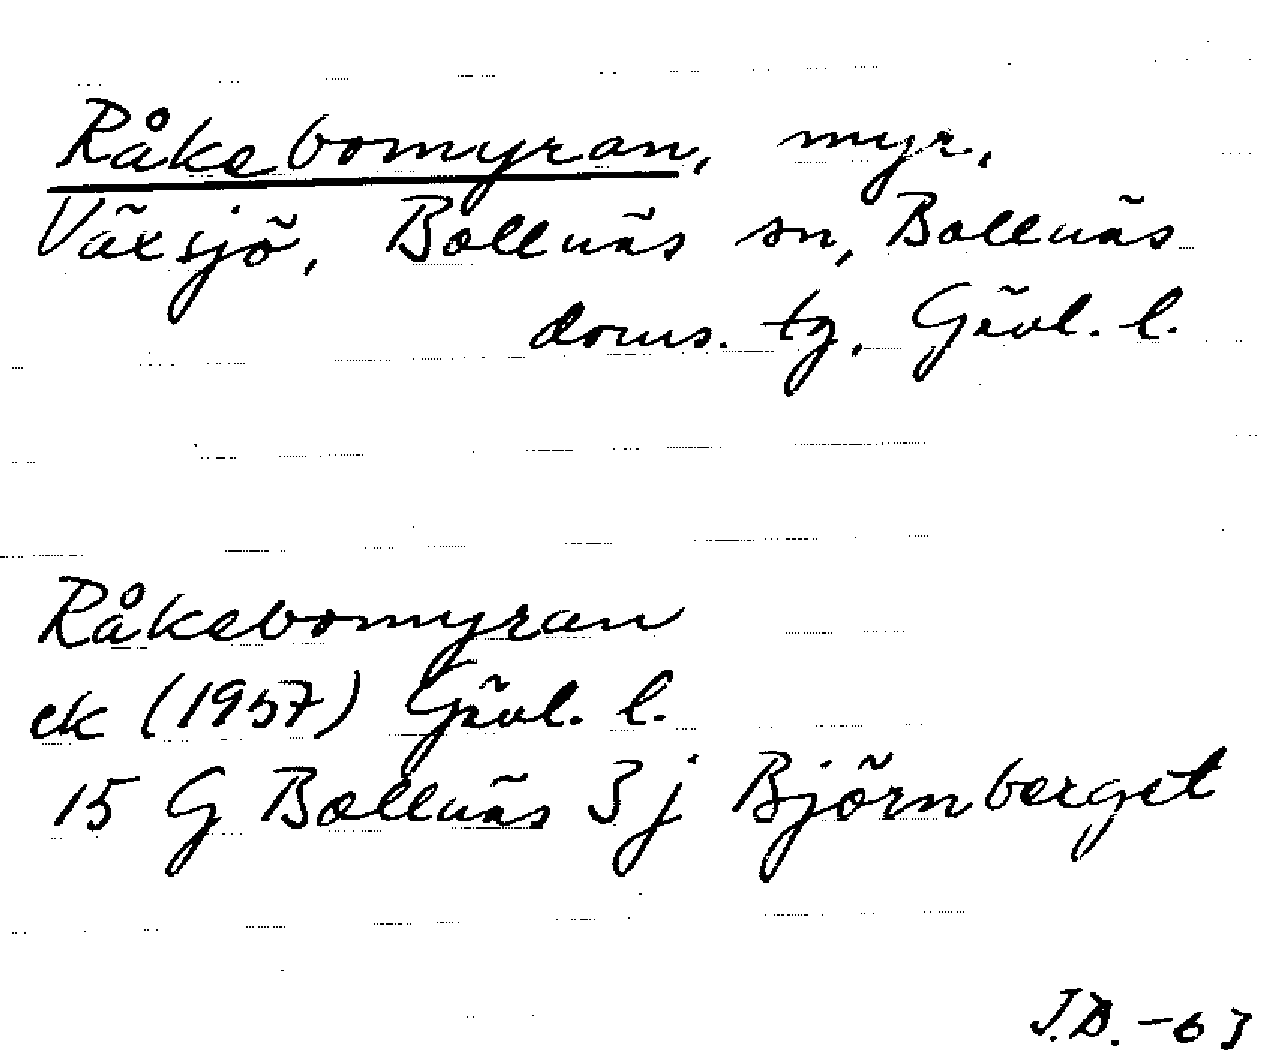 Råkebomyran, myr,
Växsjö, Bollnäs sn, Bollnäs
doms. tg, Gävl. l.
Råkebomyran
ek (1957) Gävl. l.
15 G Bollnäs 3j Björnberget
J.D. -63